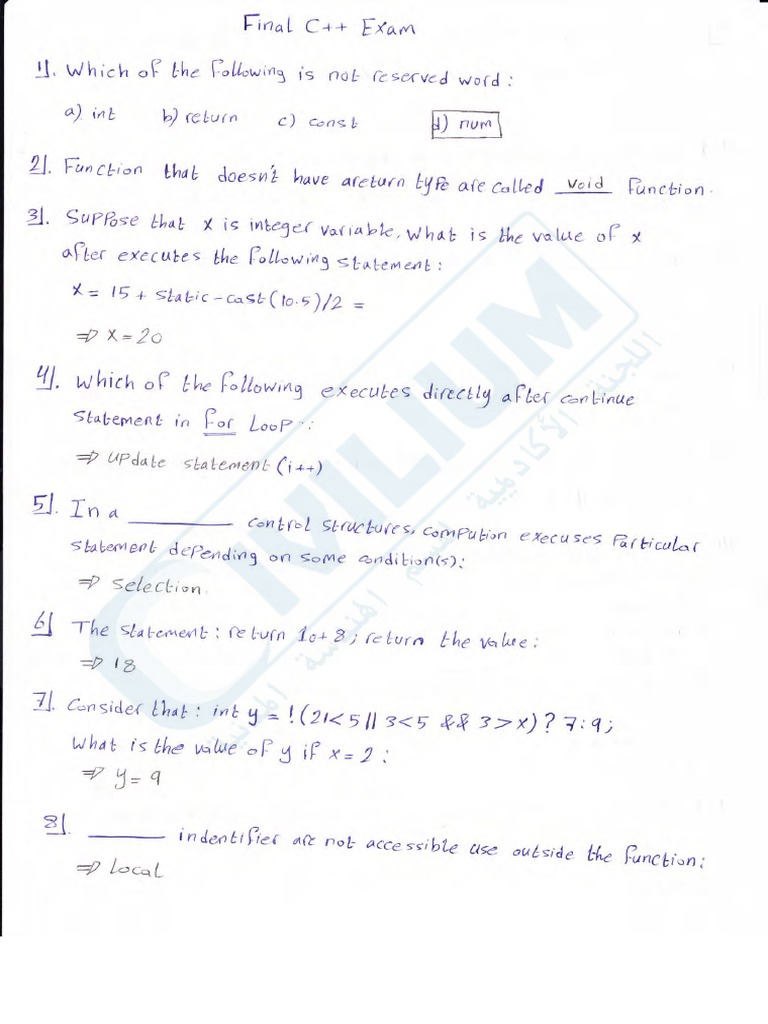 Final C++ Exam
1|. Which of the following is not reserved word :
a) int b) return c) const d) num
2|. Function that doesn't have areturn type are called void function.
3|. Suppose that x is integer variable. What is the value of x
after executes the following statement :
x = 15 + static-cast(10.5)/2 =
⇒ x = 20
4|. Which of the following executes directly after continue
statement in for Loop :
⇒ update statement (i++)
5|. In a ________ control structures, compution execuses Particular
statement depending on some condition(s):
⇒ selection.
6| The statement : return 10+8 ; return the value :
⇒ 18
7|. Consider that : int y = !(21<5 || 3<5 && 3>x) ? 7:9;
What is the value of y if x = 2 :
⇒ y = 9
8|. ______ indentifier are not accessible use outside the function :
⇒ local
CIVILIUM
اللجنة الأكاديمية لقسم الهندسة المدنية